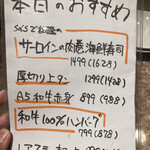 本日のおすすめ
SNSで話題の
サーロインの肉巻海鮮寿司
1499(1628)
厚切り上タン 1299(1428)
A5和牛赤身 899(988)
和牛100%ハンバーグ
799(878)